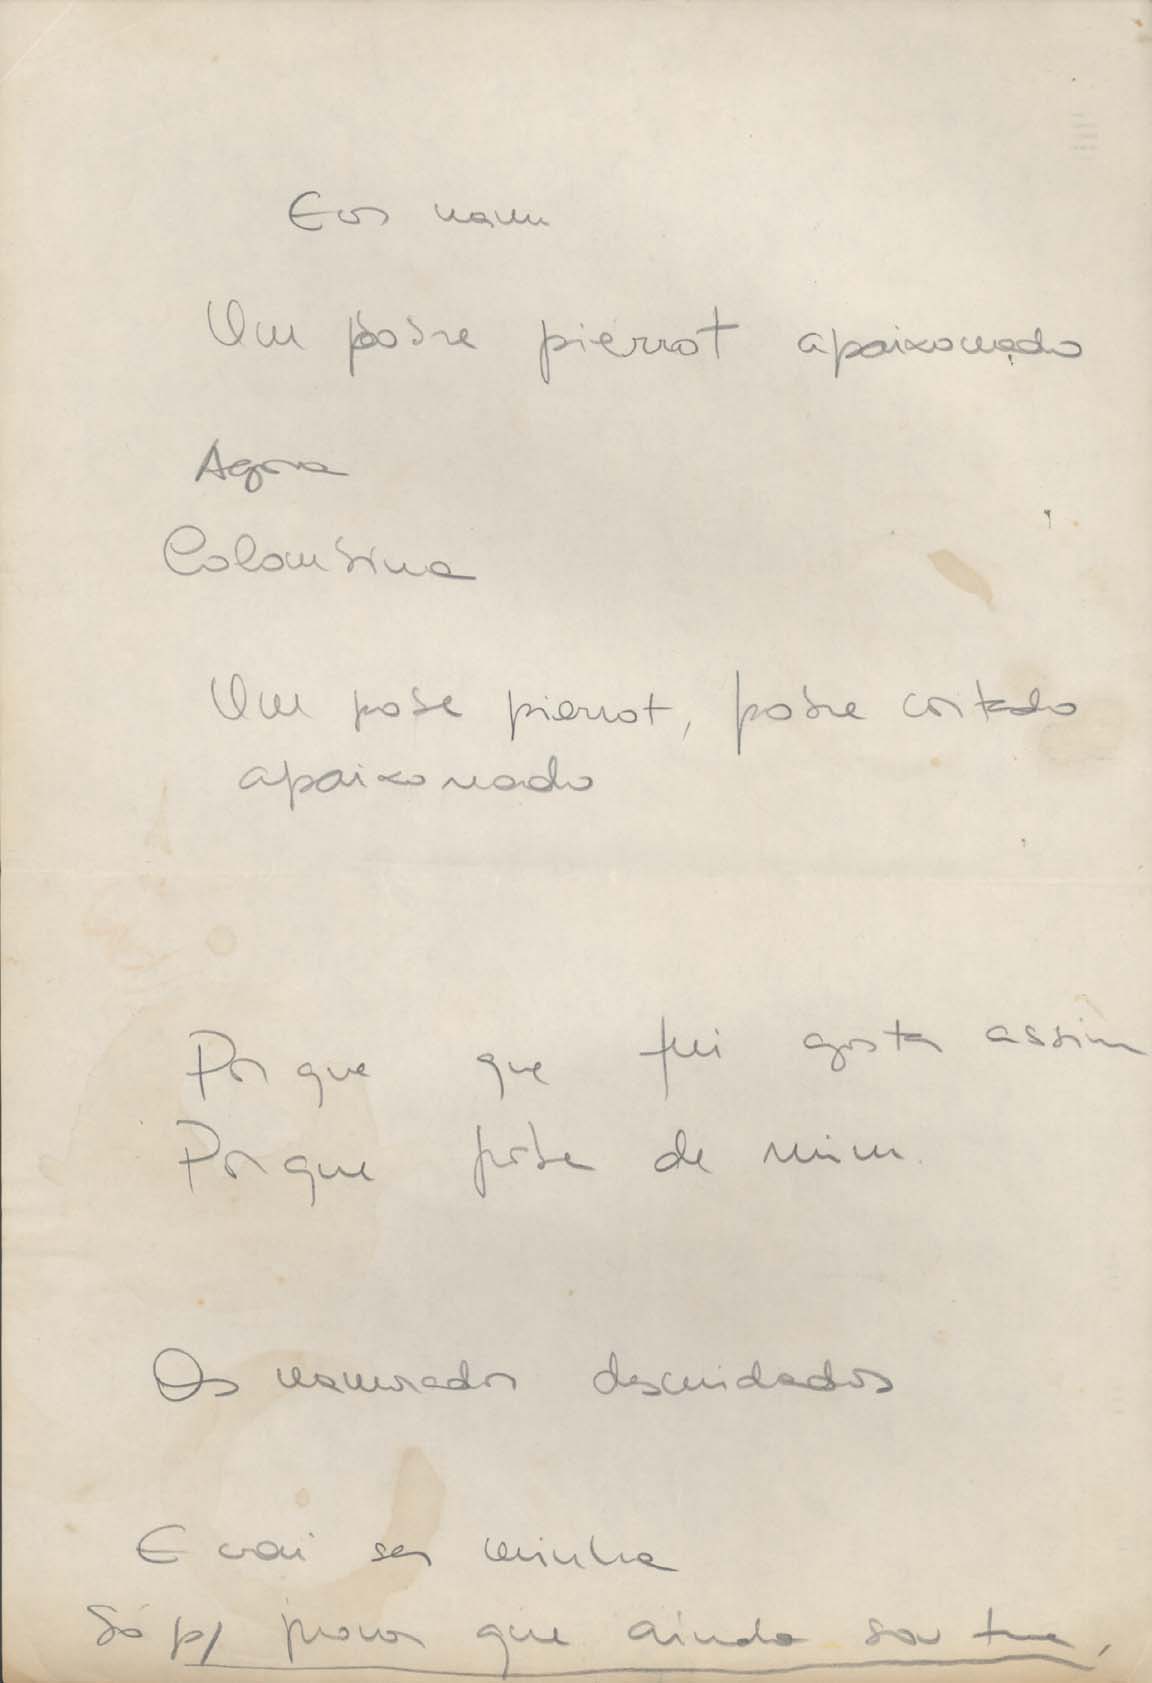 E os namo
Um pobre pierrot apaixonado
Agora
Colombina
Um pobe pierrot, pobre coitado
apaixonado
Por que que fui gostar assim
Por que perto de mim
Os namorados descuidados
E vai ser minha
Só p/ provar que ainda sou tua,